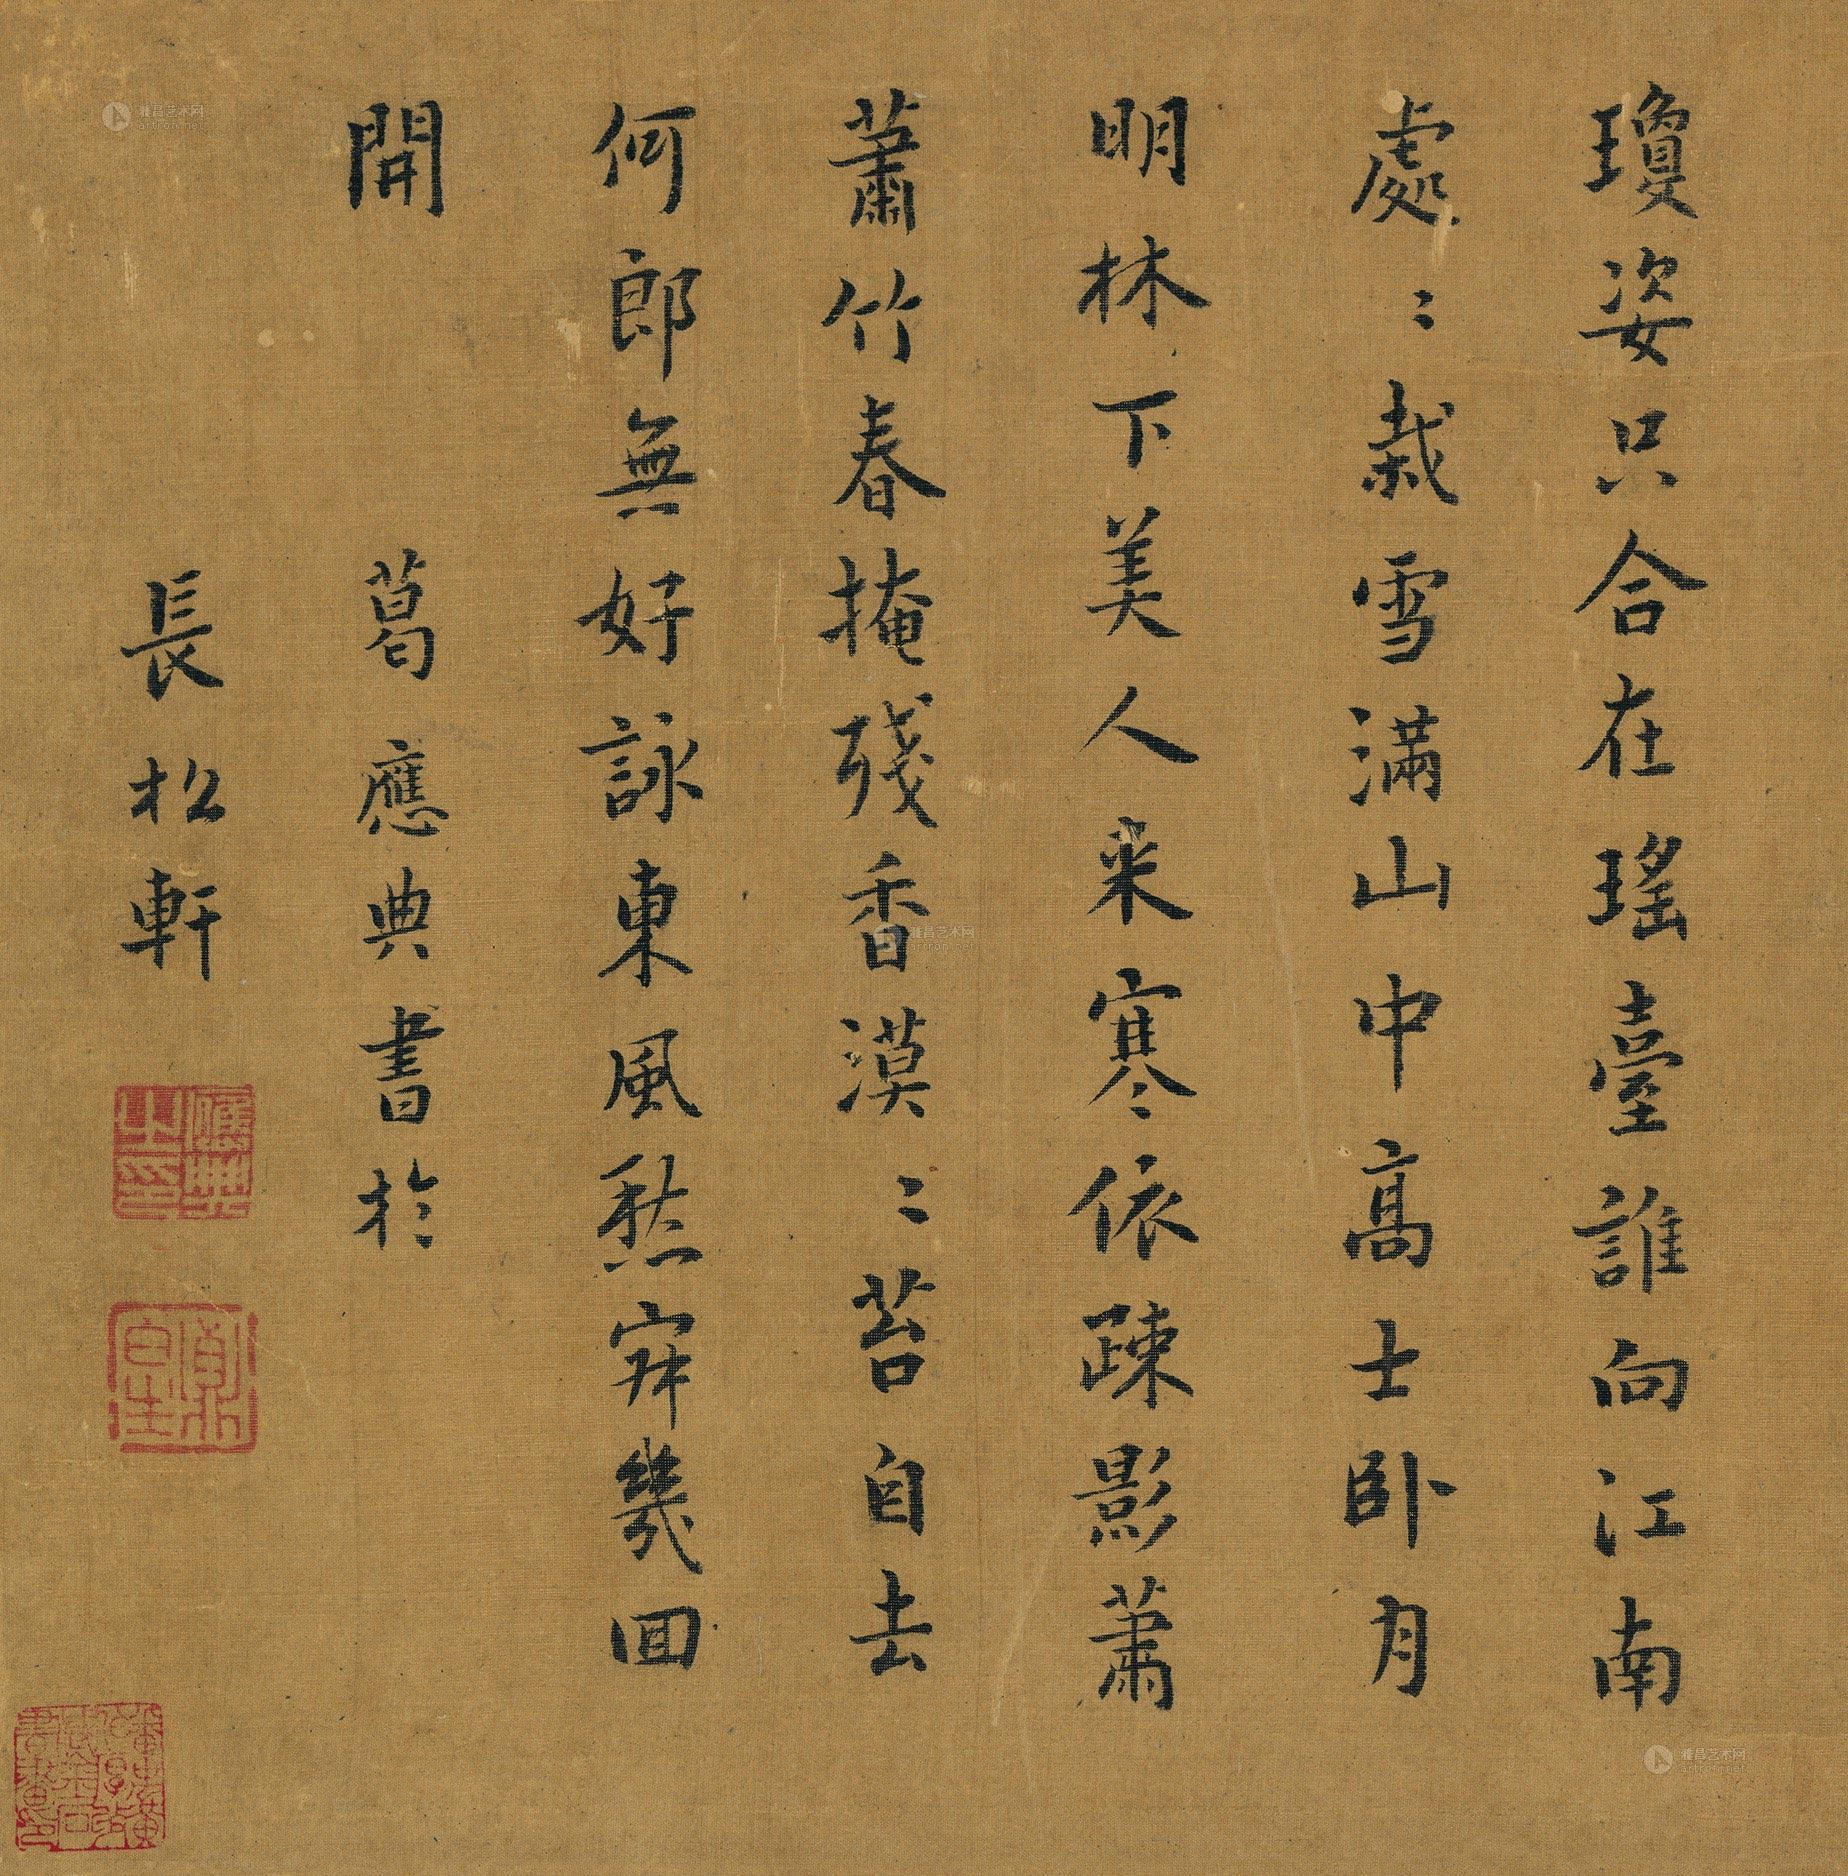 瓊姿只合在瑤臺誰向江南
處〻栽雪滿山中高士卧月
明林下美人來寒依疎影蕭
蕭竹春掩殘香漠〻苔自去
何郎無好詠東風愁寂幾回
開
葛應典書於
長松軒
應典之印
雅昌艺术网
artron.net